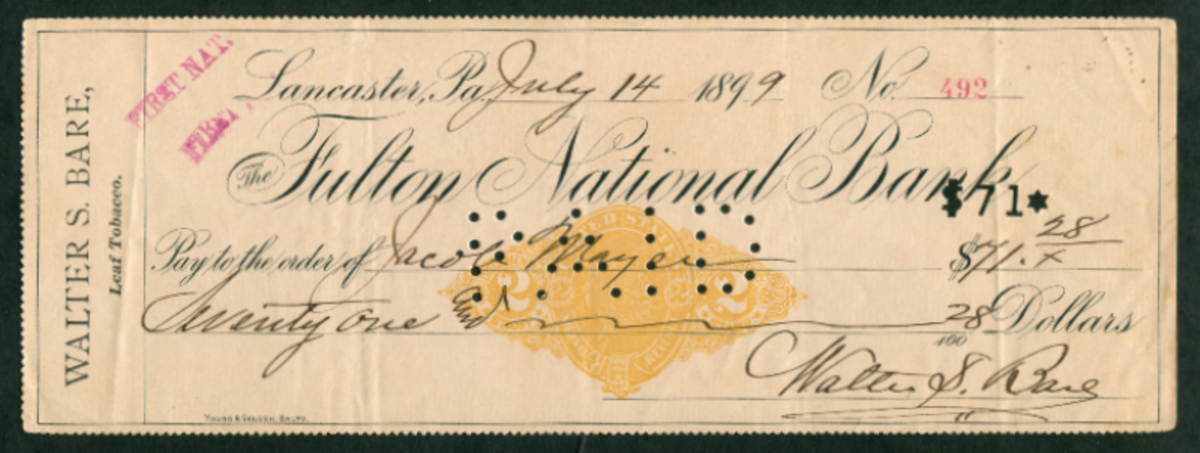 WALTER S. BARE,
Leaf Tobacco.
FIRST NAT.
FIRST
Lancaster, Pa. July 14 1899 No. 492
The Fulton National Bank
$71*
Pay to the order of Jacob Mayer $71.28/x
Seventy one and 28/100 Dollars
PAID
UNITED STATES
2 2
Walter S. Bare
YOUNG & SELDEN, BALTO.